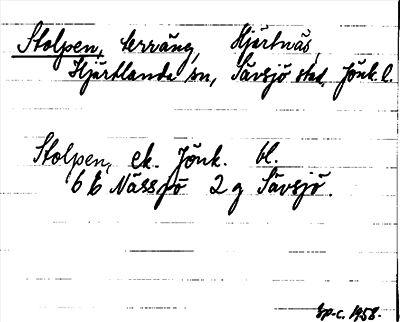 Stolpen, terräng, Hjärtnäs,
Hjärtlanda sn, Sävsjö stad, Jönk. l.
Stolpen, ek. Jönk. bl.
6 E Nässjö 2 g Sävsjö.
Sp-c. 1958.